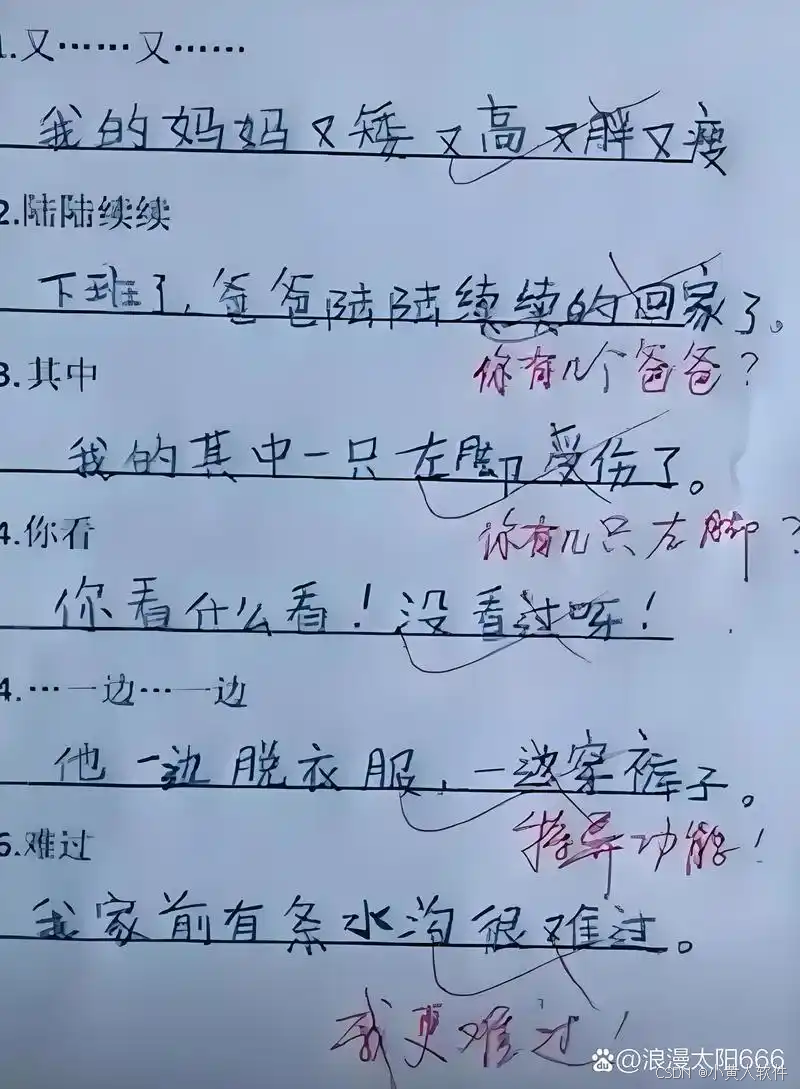 1.又……又……
我的妈妈又矮又高又胖又瘦
2.陆陆续续
下班了,爸爸陆陆续续的回家了。
你有几个爸爸?
3.其中
我的其中一只左脚受伤了。
你有几只左脚?
4.你看
你看什么看!没看过呀!
4.…一边…一边
他一边脱衣服,一边穿裤子。
特异功能!
5.难过
我家前有条水沟很难过。
我更难过!
@浪漫太阳666
CSDN @小黄人软件